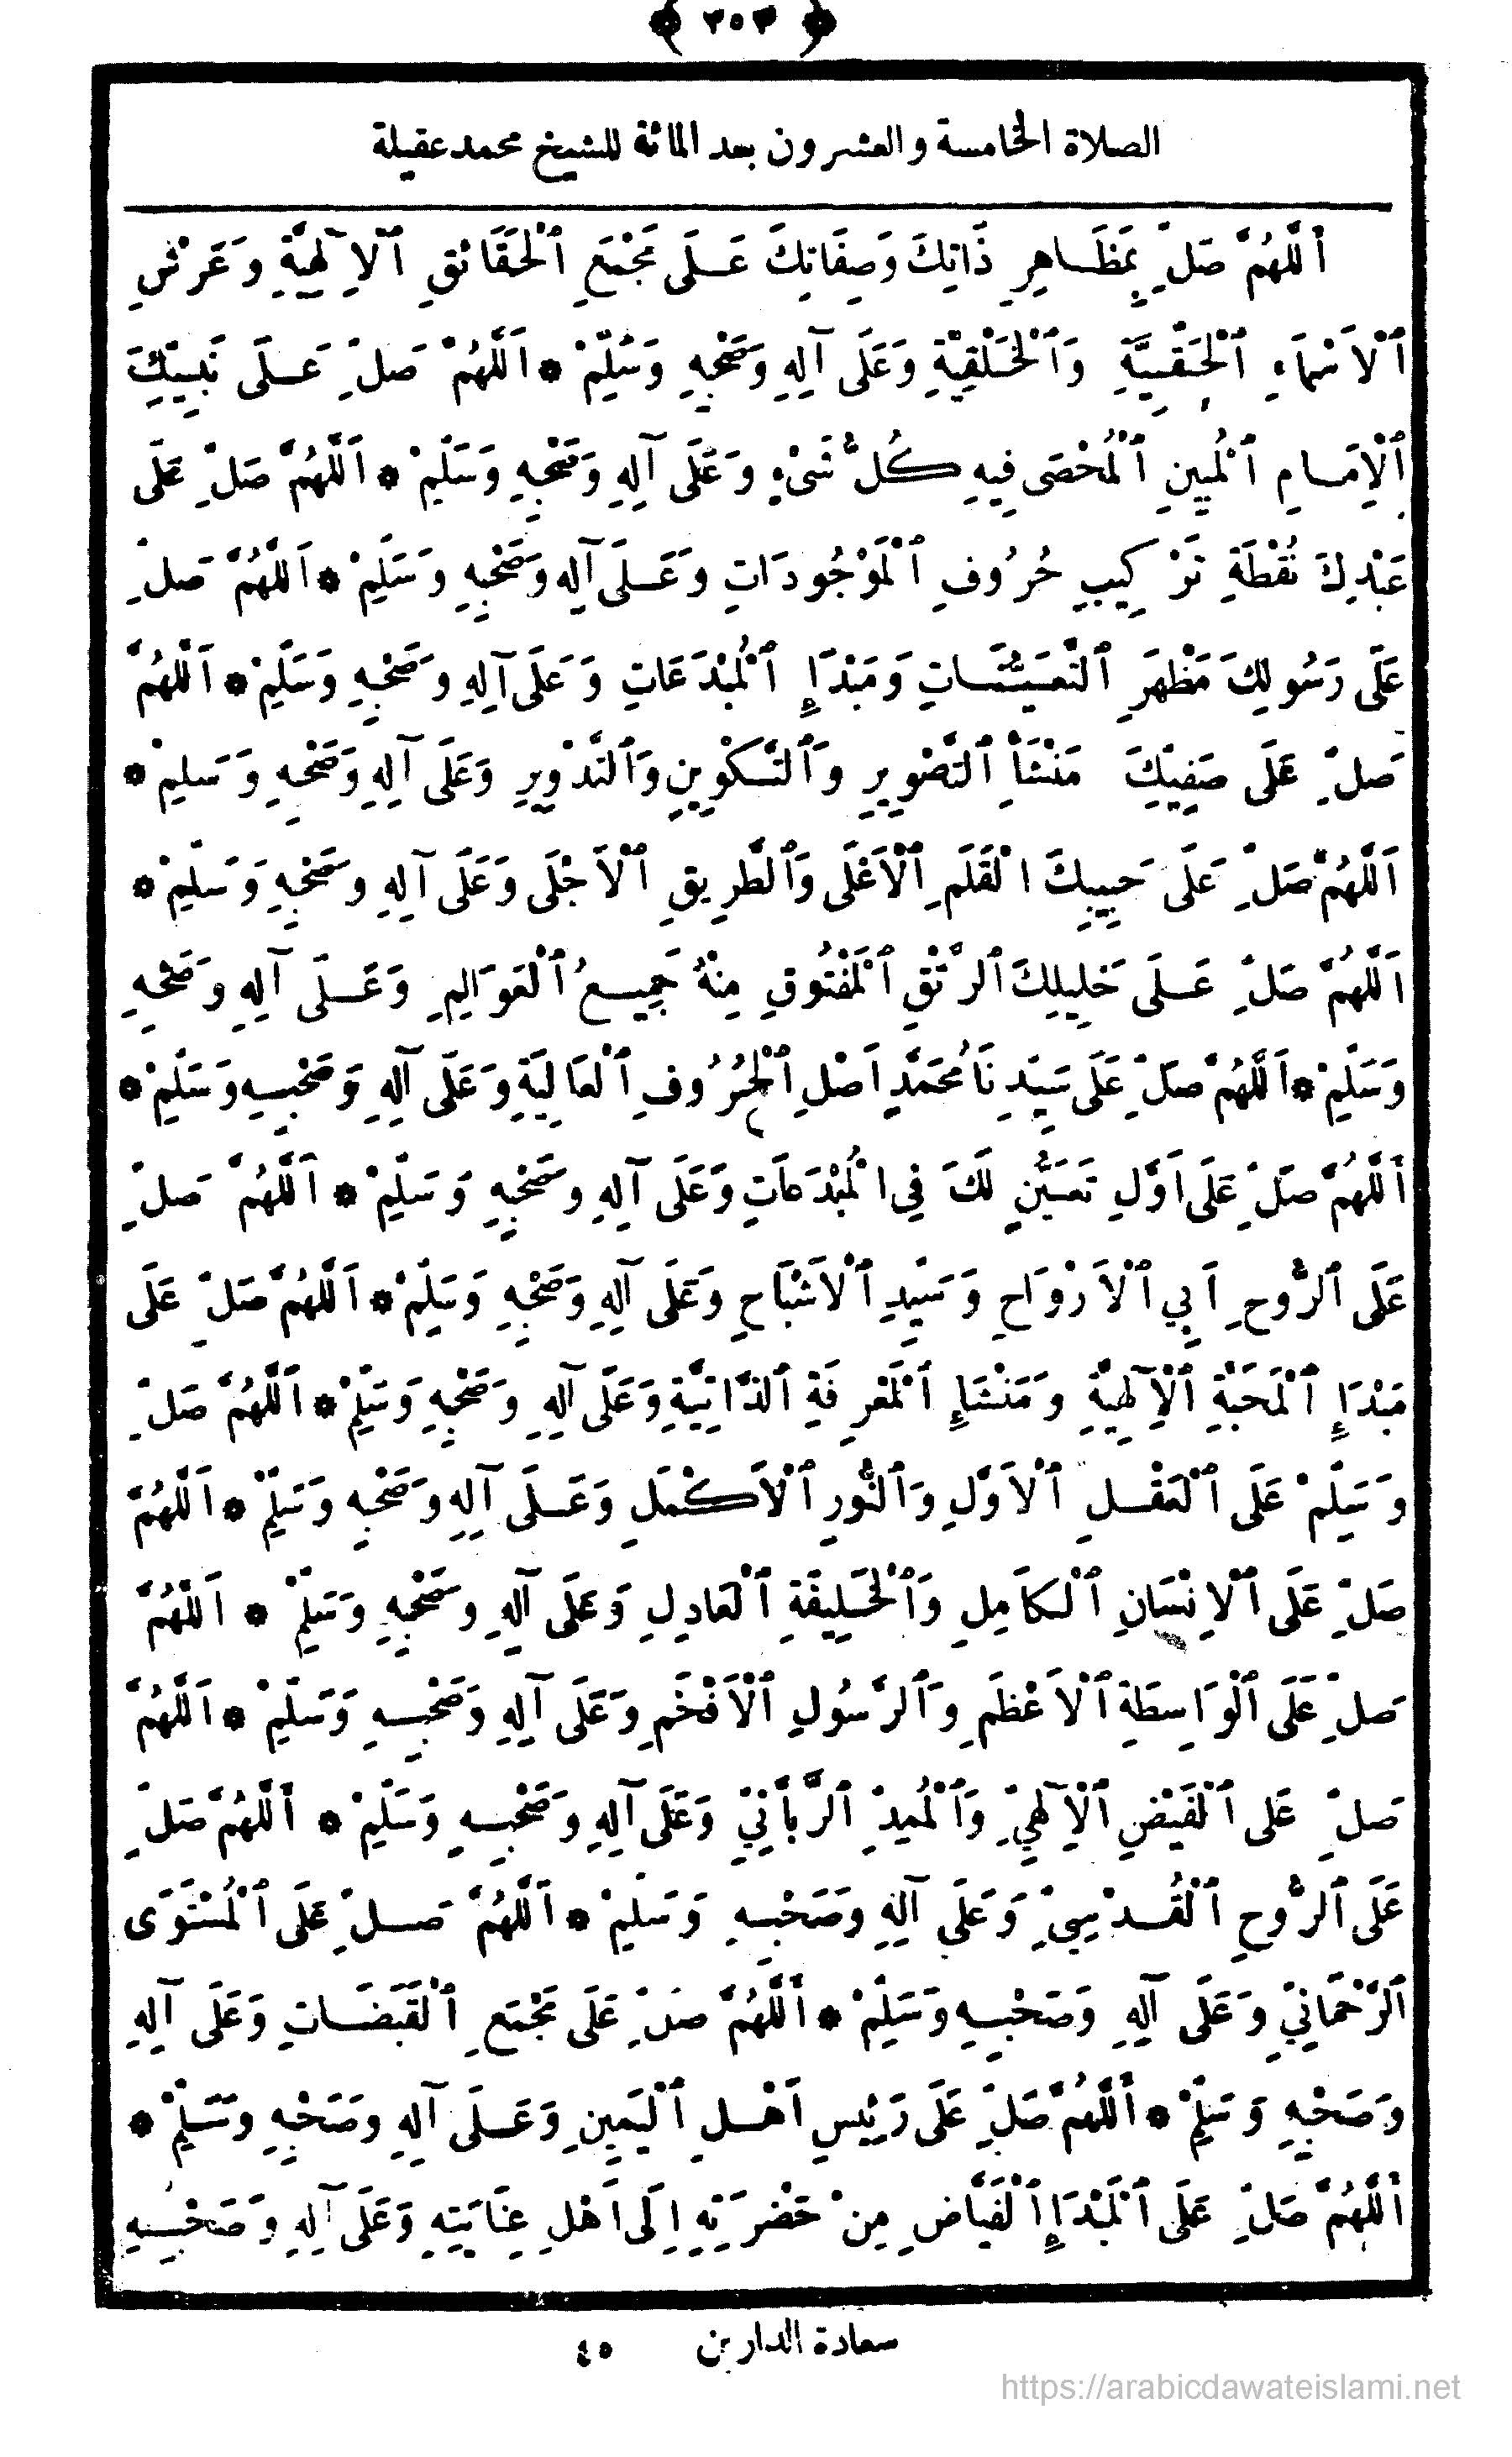 ﴿ ٣٥٣ ﴾
الصلاة الخامسة والعشرون بعد المائة للشيخ محمد عقيلة
أَللَّهُمَّ صَلِّ بِمَظَاهِرِ ذَاتِكَ وَصِفَاتِكَ عَلَى مَجْمَعِ ٱلْحَقَائِقِ ٱلْإِلٰهِيَّةِ وَعَرْشِ
ٱلْأَسْمَاءِ ٱلْحَقِّيَّةِ وَٱلْخَلْقِيَّةِ وَعَلَى آلِهِ وَصَحْبِهِ وَسَلِّمْ * اَللَّهُمَّ صَلِّ عَلَى نَبِيِّكَ
ٱلْإِمَامِ ٱلْمُبِينِ ٱلْمُحْصَى فِيهِ كُلُّ شَيْءٍ وَعَلَى آلِهِ وَصَحْبِهِ وَسَلِّمْ * اَللَّهُمَّ صَلِّ عَلَى
عَبْدِكَ نُقْطَةِ تَرْكِيبِ حُرُوفِ ٱلْمَوْجُودَاتِ وَعَلَى آلِهِ وَصَحْبِهِ وَسَلِّمْ * اَللَّهُمَّ صَلِّ
عَلَى رَسُولِكَ مَظْهَرِ ٱلتَّعَيُّنَاتِ وَمَبْدَإِ ٱلْمُبْدَعَاتِ وَعَلَى آلِهِ وَصَحْبِهِ وَسَلِّمْ * اَللَّهُمَّ
صَلِّ عَلَى صَفِيِّكَ مَنْشَأِ ٱلتَّصْوِيرِ وَٱلتَّكْوِينِ وَٱلتَّدْوِيرِ وَعَلَى آلِهِ وَصَحْبِهِ وَسَلِّمْ *
اَللَّهُمَّ صَلِّ عَلَى حَبِيبِكَ الْقَلَمِ ٱلْأَعْلَى وَٱلطَّرِيقِ ٱلْأَجْلَى وَعَلَى آلِهِ وَصَحْبِهِ وَسَلِّمْ *
اَللَّهُمَّ صَلِّ عَلَى خَلِيلِكَ ٱلرَّتْقِ ٱلْمَفْتُوقِ مِنْهُ جَمِيعُ ٱلْعَوَالِمِ وَعَلَى آلِهِ وَصَحْبِهِ
وَسَلِّمْ * اَللَّهُمَّ صَلِّ عَلَى سَيِّدِنَا مُحَمَّدٍ اَصْلِ ٱلْحُرُوفِ ٱلْعَالِيَةِ وَعَلَى آلِهِ وَصَحْبِهِ وَسَلِّمْ *
أَللَّهُمَّ صَلِّ عَلَى اَوَّلِ تَعَيُّنٍ لَكَ فِي الْمُبْدَعَاتِ وَعَلَى آلِهِ وَصَحْبِهِ وَسَلِّمْ * اَللَّهُمَّ صَلِّ
عَلَى ٱلرُّوحِ اَبِي ٱلْأَرْوَاحِ وَسَيِّدِ ٱلْأَشْبَاحِ وَعَلَى آلِهِ وَصَحْبِهِ وَسَلِّمْ * اَللَّهُمَّ صَلِّ عَلَى
مَبْدَإِ ٱلْمَحَبَّةِ ٱلْإِلٰهِيَّةِ وَمَنْشَإِ ٱلْمَعْرِفَةِ ٱلذَّاتِيَّةِ وَعَلَى آلِهِ وَصَحْبِهِ وَسَلِّمْ * اَللَّهُمَّ صَلِّ
وَسَلِّمْ عَلَى ٱلْعَقْلِ ٱلْأَوَّلِ وَٱلنُّورِ ٱلْأَكْمَلِ وَعَلَى آلِهِ وَصَحْبِهِ وَسَلِّمْ * اَللَّهُمَّ
صَلِّ عَلَى ٱلْإِنْسَانِ ٱلْكَامِلِ وَٱلْخَلِيفَةِ ٱلْعَادِلِ وَعَلَى آلِهِ وَصَحْبِهِ وَسَلِّمْ * اَللَّهُمَّ
صَلِّ عَلَى ٱلْوَاسِطَةِ ٱلْأَعْظَمِ وَٱلرَّسُولِ ٱلْأَفْخَمِ وَعَلَى آلِهِ وَصَحْبِهِ وَسَلِّمْ * اَللَّهُمَّ
صَلِّ عَلَى ٱلْفَيْضِ ٱلْإِلٰهِيِّ وَٱلْمُمِدِّ ٱلرَّبَّانِيِّ وَعَلَى آلِهِ وَصَحْبِهِ وَسَلِّمْ * أَللَّهُمَّ صَلِّ
عَلَى ٱلرُّوحِ ٱلْقُدْسِيِّ وَعَلَى آلِهِ وَصَحْبِهِ وَسَلِّمْ * اَللَّهُمَّ صَلِّ عَلَى ٱلْمُسْتَوَى
ٱلرَّحْمَانِيِّ وَعَلَى آلِهِ وَصَحْبِهِ وَسَلِّمْ * أَللَّهُمَّ صَلِّ عَلَى مَجْمَعِ ٱلْقَبَضَاتِ وَعَلَى آلِهِ
وَصَحْبِهِ وَسَلِّمْ * أَللَّهُمَّ صَلِّ عَلَى رَئِيسِ اَهْلِ ٱلْيَمِينِ وَعَلَى آلِهِ وَصَحْبِهِ وَسَلِّمْ *
أَللَّهُمَّ صَلِّ عَلَى ٱلْمَبْدَإِ ٱلْفَيَّاضِ مِنْ حَضْرَتِهِ اِلَى اَهْلِ عِنَايَتِهِ وَعَلَى آلِهِ وَصَحْبِهِ
سعادة الدارين ٤٥
https://arabicdawateislami.net